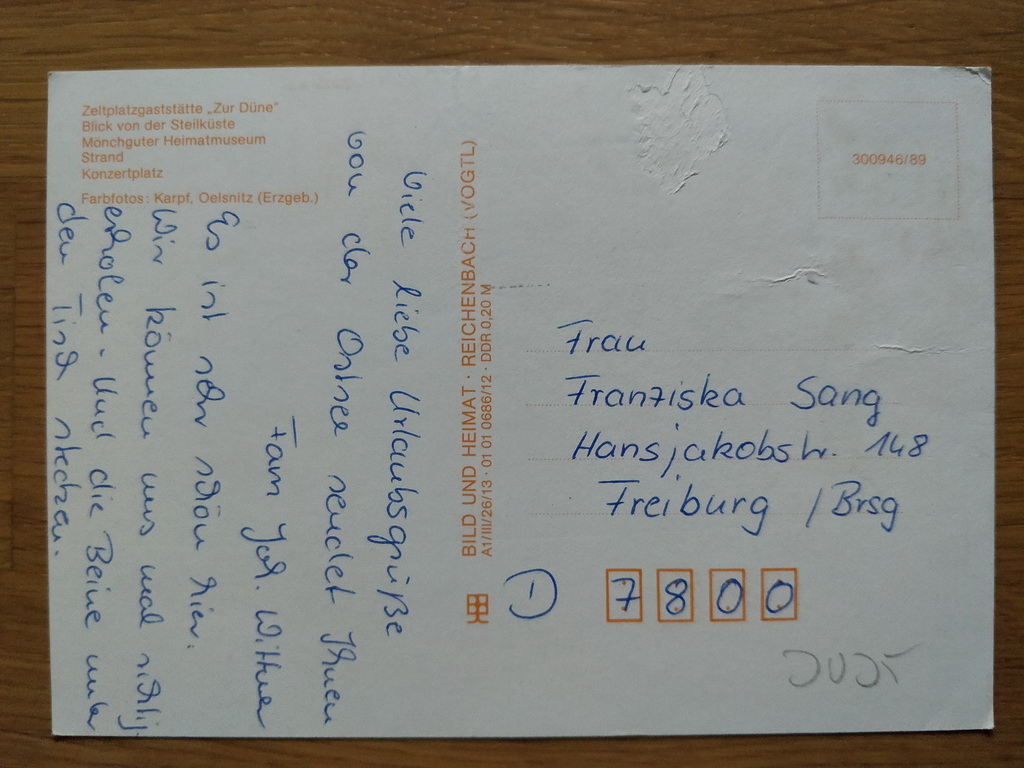 Zeltplatzgaststätte „Zur Düne"
Blick von der Steilküste
Mönchguter Heimatmuseum
Strand
Konzertplatz
Farbfotos: Karpf, Oelsnitz (Erzgeb.)
Viele liebe Urlaubsgrüße
von der Ostsee sendet Ihnen
Fam Joh. Wittner
Es ist sehr schön hier.
Wir können uns mal richtig
erholen. Und die Beine unter
den Tisch stecken.
BILD UND HEIMAT · REICHENBACH (VOGTL)
A1/III/26/13 · 01 01 0686/12 · DDR 0,20 M
300946/89
Frau
Franziska Sang
Hansjakobstr. 148
Freiburg /Brsg
D 7800